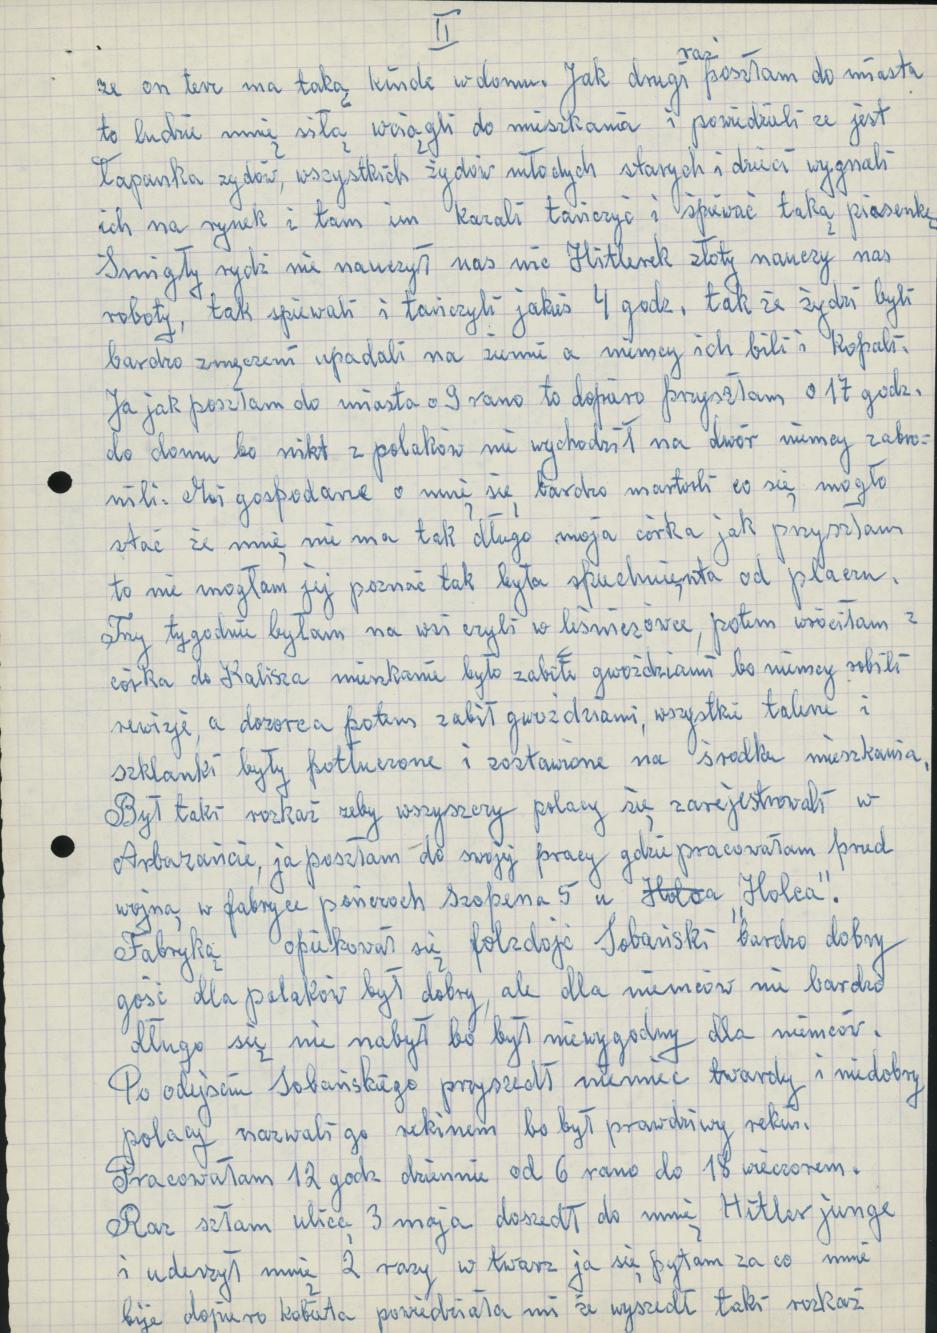 II
że on też ma taką kinde w domu. Jak drugi raz poszłam do miasta
to ludzie mnię siłą wciągli do mieszkania i powiedzieli ze jest
Łapanka zydów, wszystkich żydów młodych starych i dzieci wygnali
ich na rynek i tam im kazali tańczyć i śpiewać taką piosenkę
Śmigły rydz nie nauczył nas nic Hitlerek złoty nauczy nas
roboty, tak spiewali i tańczyli jakieś 4 godz. tak że żydzi byli
bardzo zmęczeni upadali na ziemie a niemcy ich bili i kopali.
Ja jak poszłam do miasta o 9 rano to dopiero przyszłam o 17 godz.
do domu bo nikt z polaków nie wychodził na dwór niemcy zabro=
nili. Moi gospodarze o mnię się bardzo martwili co się mogło
stać że mnię nie ma tak długo moja córka jak przyszłam
to nie mogłam jej poznać tak była spuchnięnta od płaczu.
Trzy tygodnie byłam na wsi czyli w leśniczówce, potem wróciłam z
córka do Kalisza mieszkanie było zabite gwoździami bo niemcy robili
rewizje, a dozorca potem zabił gwoździami, wszystkie talerze i
szklanki były potłuczone i zostawione na środku mieszkania.
Był taki rozkaz zeby wszyszczy polacy się zarejestrowali w
Arbazamcie, ja poszłam do swojej pracy gdzie pracowałam przed
wojną w fabryce pończoch Szopena 5 u Holca "Holca".
Fabryką opiekował się folzdojć Sobański bardzo dobry
gość dla polaków był dobry, ale dla niemców nie bardzo
długo się nie nabył bo był niewygodny dla niemców.
Po odejściu Sobańskiego przyszedł niemiec twardy i niedobry
polacy nazwali go rekinem bo był prawdziwy rekin.
Pracowałam 12 godz dziennie od 6 rano do 18 wieczorem.
Raz szłam ulicą 3 maja doszedł do mnię Hitler junge
i uderzył mnię 2 razy w twarz ja się pytam za co mnie
bije dopiero kobieta powiedziała mi że wyszedł taki rozkaz